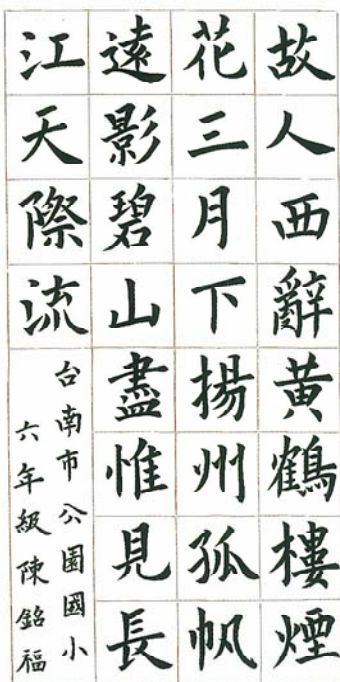 故人西辭黃鶴樓煙
花三月下揚州孤帆
遠影碧山盡惟見長
江天際流
台南市公園國小
六年級陳銘福